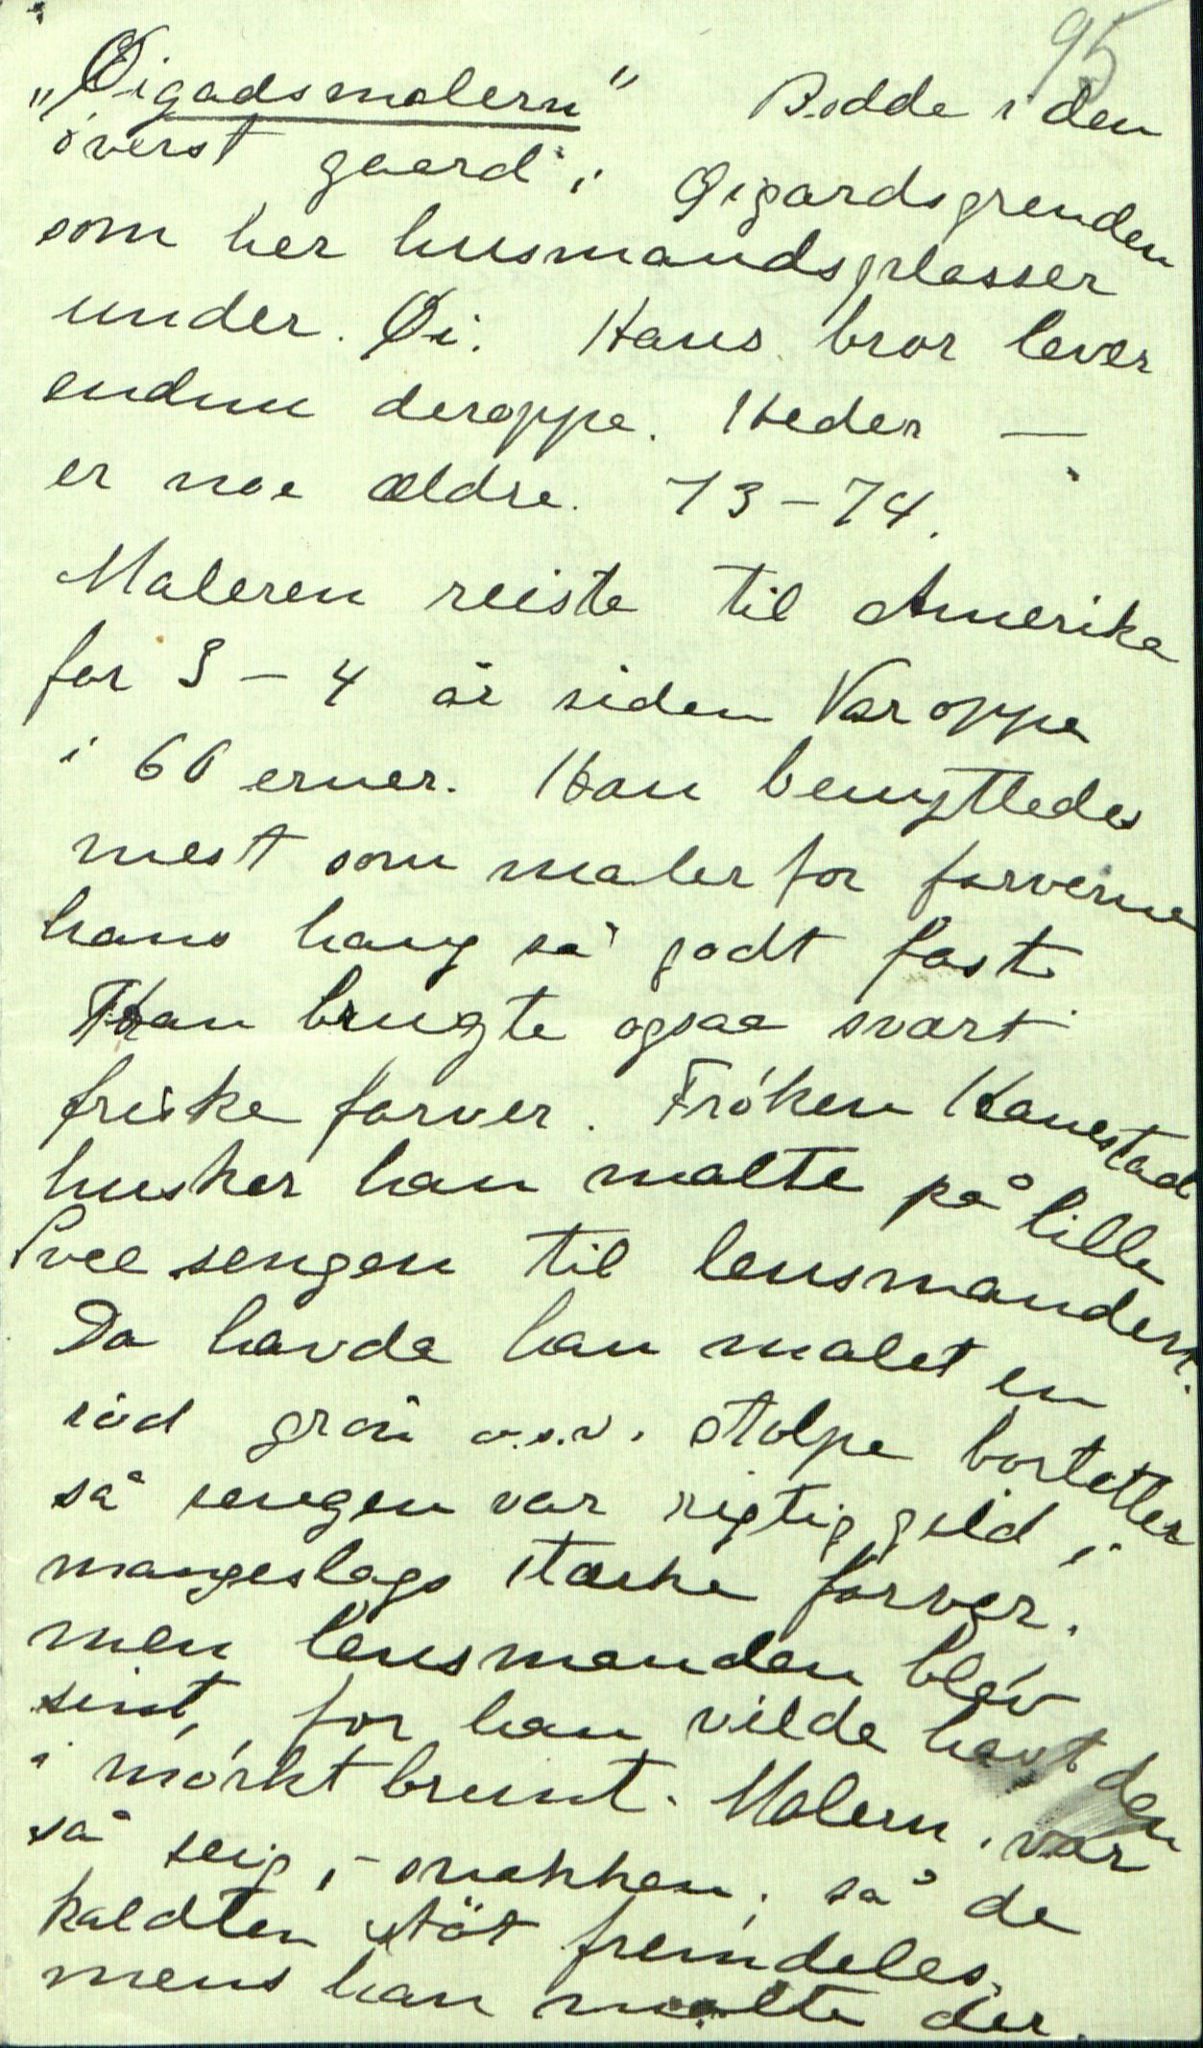 95
„Øigadsmalern" Bodde i den
överst gaard i Øigardsgrenden
som her husmandsplasser
under Øi. Hans bror lever
endnu deroppe. Heder —
er noe ældre. 73-74.
Maleren reiste til Amerika
for 3-4 år siden Var oppe
i 60 erner. Han benyttedes
mest som maler for farverne
hans hang så godt fast
Han brugte ogsaa svært
friske farver. Fröken Hanestad
husker han malte på lille
sengen til lensmandern.
Da havde han malet en
röd grön o.s.v. stolpe bortetter
så sengen var rigtig gild i
mangeslags stærke farver.
men lensmanden blev
sint, for han vilde havt den
i mörkt brunt. Malern var
så seig i snakken, så de
kaldten Stöt fremdeles.
mens han malte der.